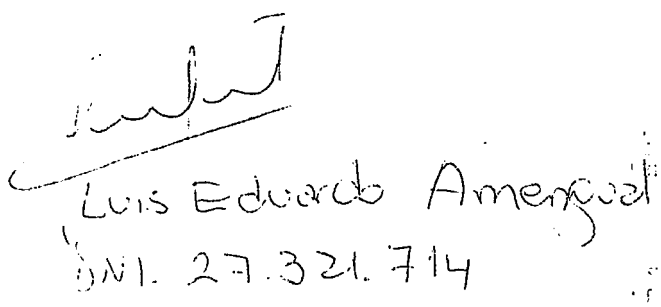 Luis Eduardo Amengual
DNI. 27.321.714